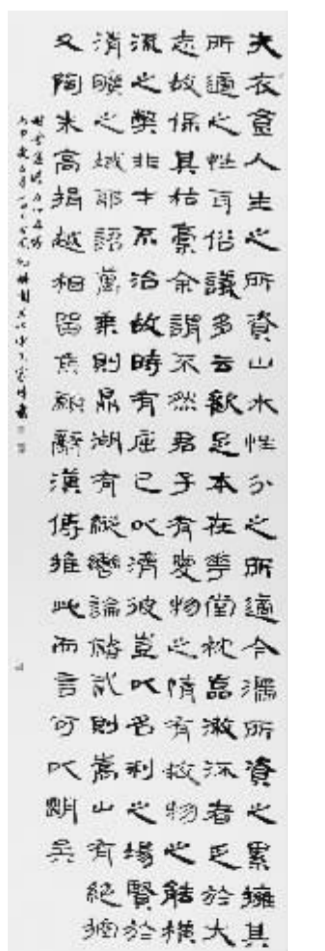 夫衣食人生之所資山水性分之所適今滯所資之累擁其
所適之性耳俗議多云歡足本在華堂枕嵓漱流者乏於大
志故保其枯槁余謂不然君子有愛物之情有救物之能橫
流之弊非才不治故時有屈己以濟彼豈以名利之場賢於
清曠之域耶語萬乘則鼎湖有縱轡論儲貳則嵩山有絕控
又陶朱高揖越相留侯願辭漢傅推此而言可以明矣